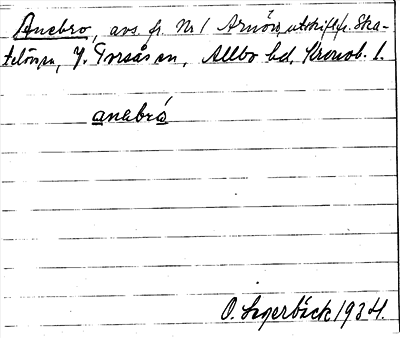 Anebro, avs. fr. Nr 1 Arnön, utskift fr. Ska-
telöv sn, V. Torsås sn, Allbo hd, Kronob. l.
anabró
O. Segerbäck 1934.